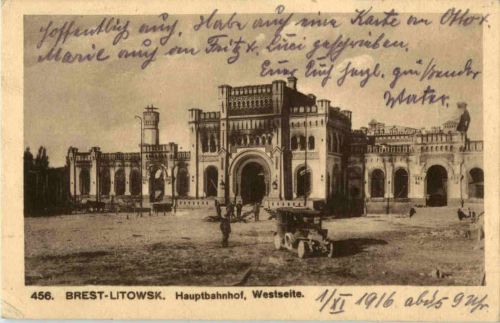 hoffentlich auch. Habe auch eine Karte an Otto u.
Marie auch an Fritz u. Luci geschrieben.
Euer Euch herzl. grüßender
Walter.
456. BREST-LITOWSK. Hauptbahnhof, Westseite.
1/XI 1916 abds 9 Uhr